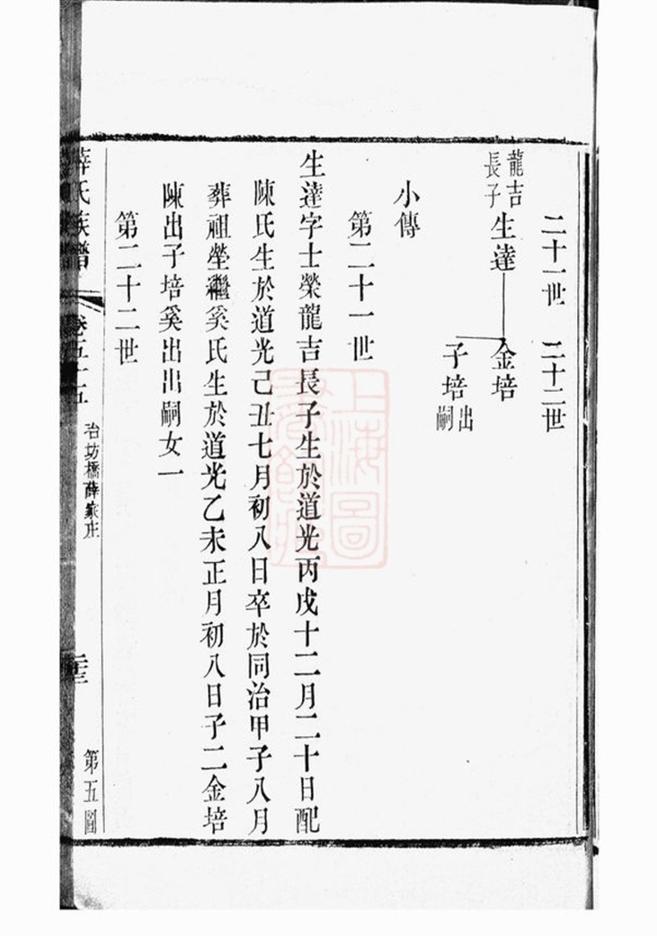 二十一世　二十二世
龍吉長子　生達　金培
子培　出嗣
小傳
第二十一世
生達字士榮龍吉長子生於道光丙戌十二月二十日配
陳氏生於道光己丑七月初八日卒於同治甲子八月
葬祖塋繼奚氏生於道光乙未正月初八日子二金培
陳出子培奚出出嗣女一
第二十二世
薛氏族譜　卷五十五　冶坊橋薛家庄　第五圖
上海圖